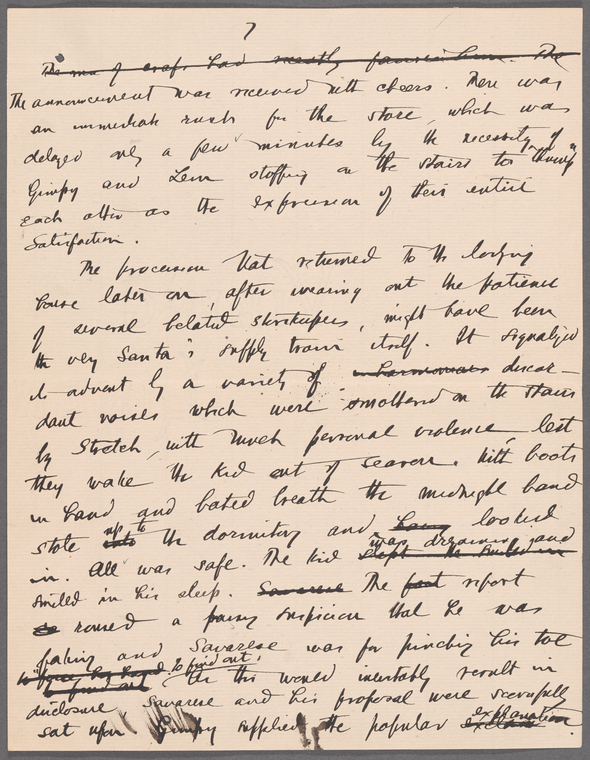 7
The man of craps had mostly favored him. The
The announcement was received with cheers. There was
an immediate rush for the store, which was
delayed only a few minutes by the necessity of
Gimpy and Lem stopping on the stairs to thump
each other as the expression of their entire
satisfaction.
The procession that returned to the lodging
house later on, after wearing out the patience
of several belated storekeepers, might have been
the very Santa's supply train itself. It signalized
its advent by a variety of inharmonious discor-
dant noises which were smothered on the stairs
by Stretch, with much personal violence, lest
they wake the kid out of season. With boots
in hand and bated breath the midnight band
stole into up to the dormitory and looked
in. All was safe. The kid slept was dreaming and
smiled in his sleep. Savarese The report
roused a passing suspicion that he was
faking and Savarese was for pinching his toe
to find out. As this would inevitably result in
disclosure Savarese and his proposal were scornfully
sat upon. Gimpy supplied the popular explanation